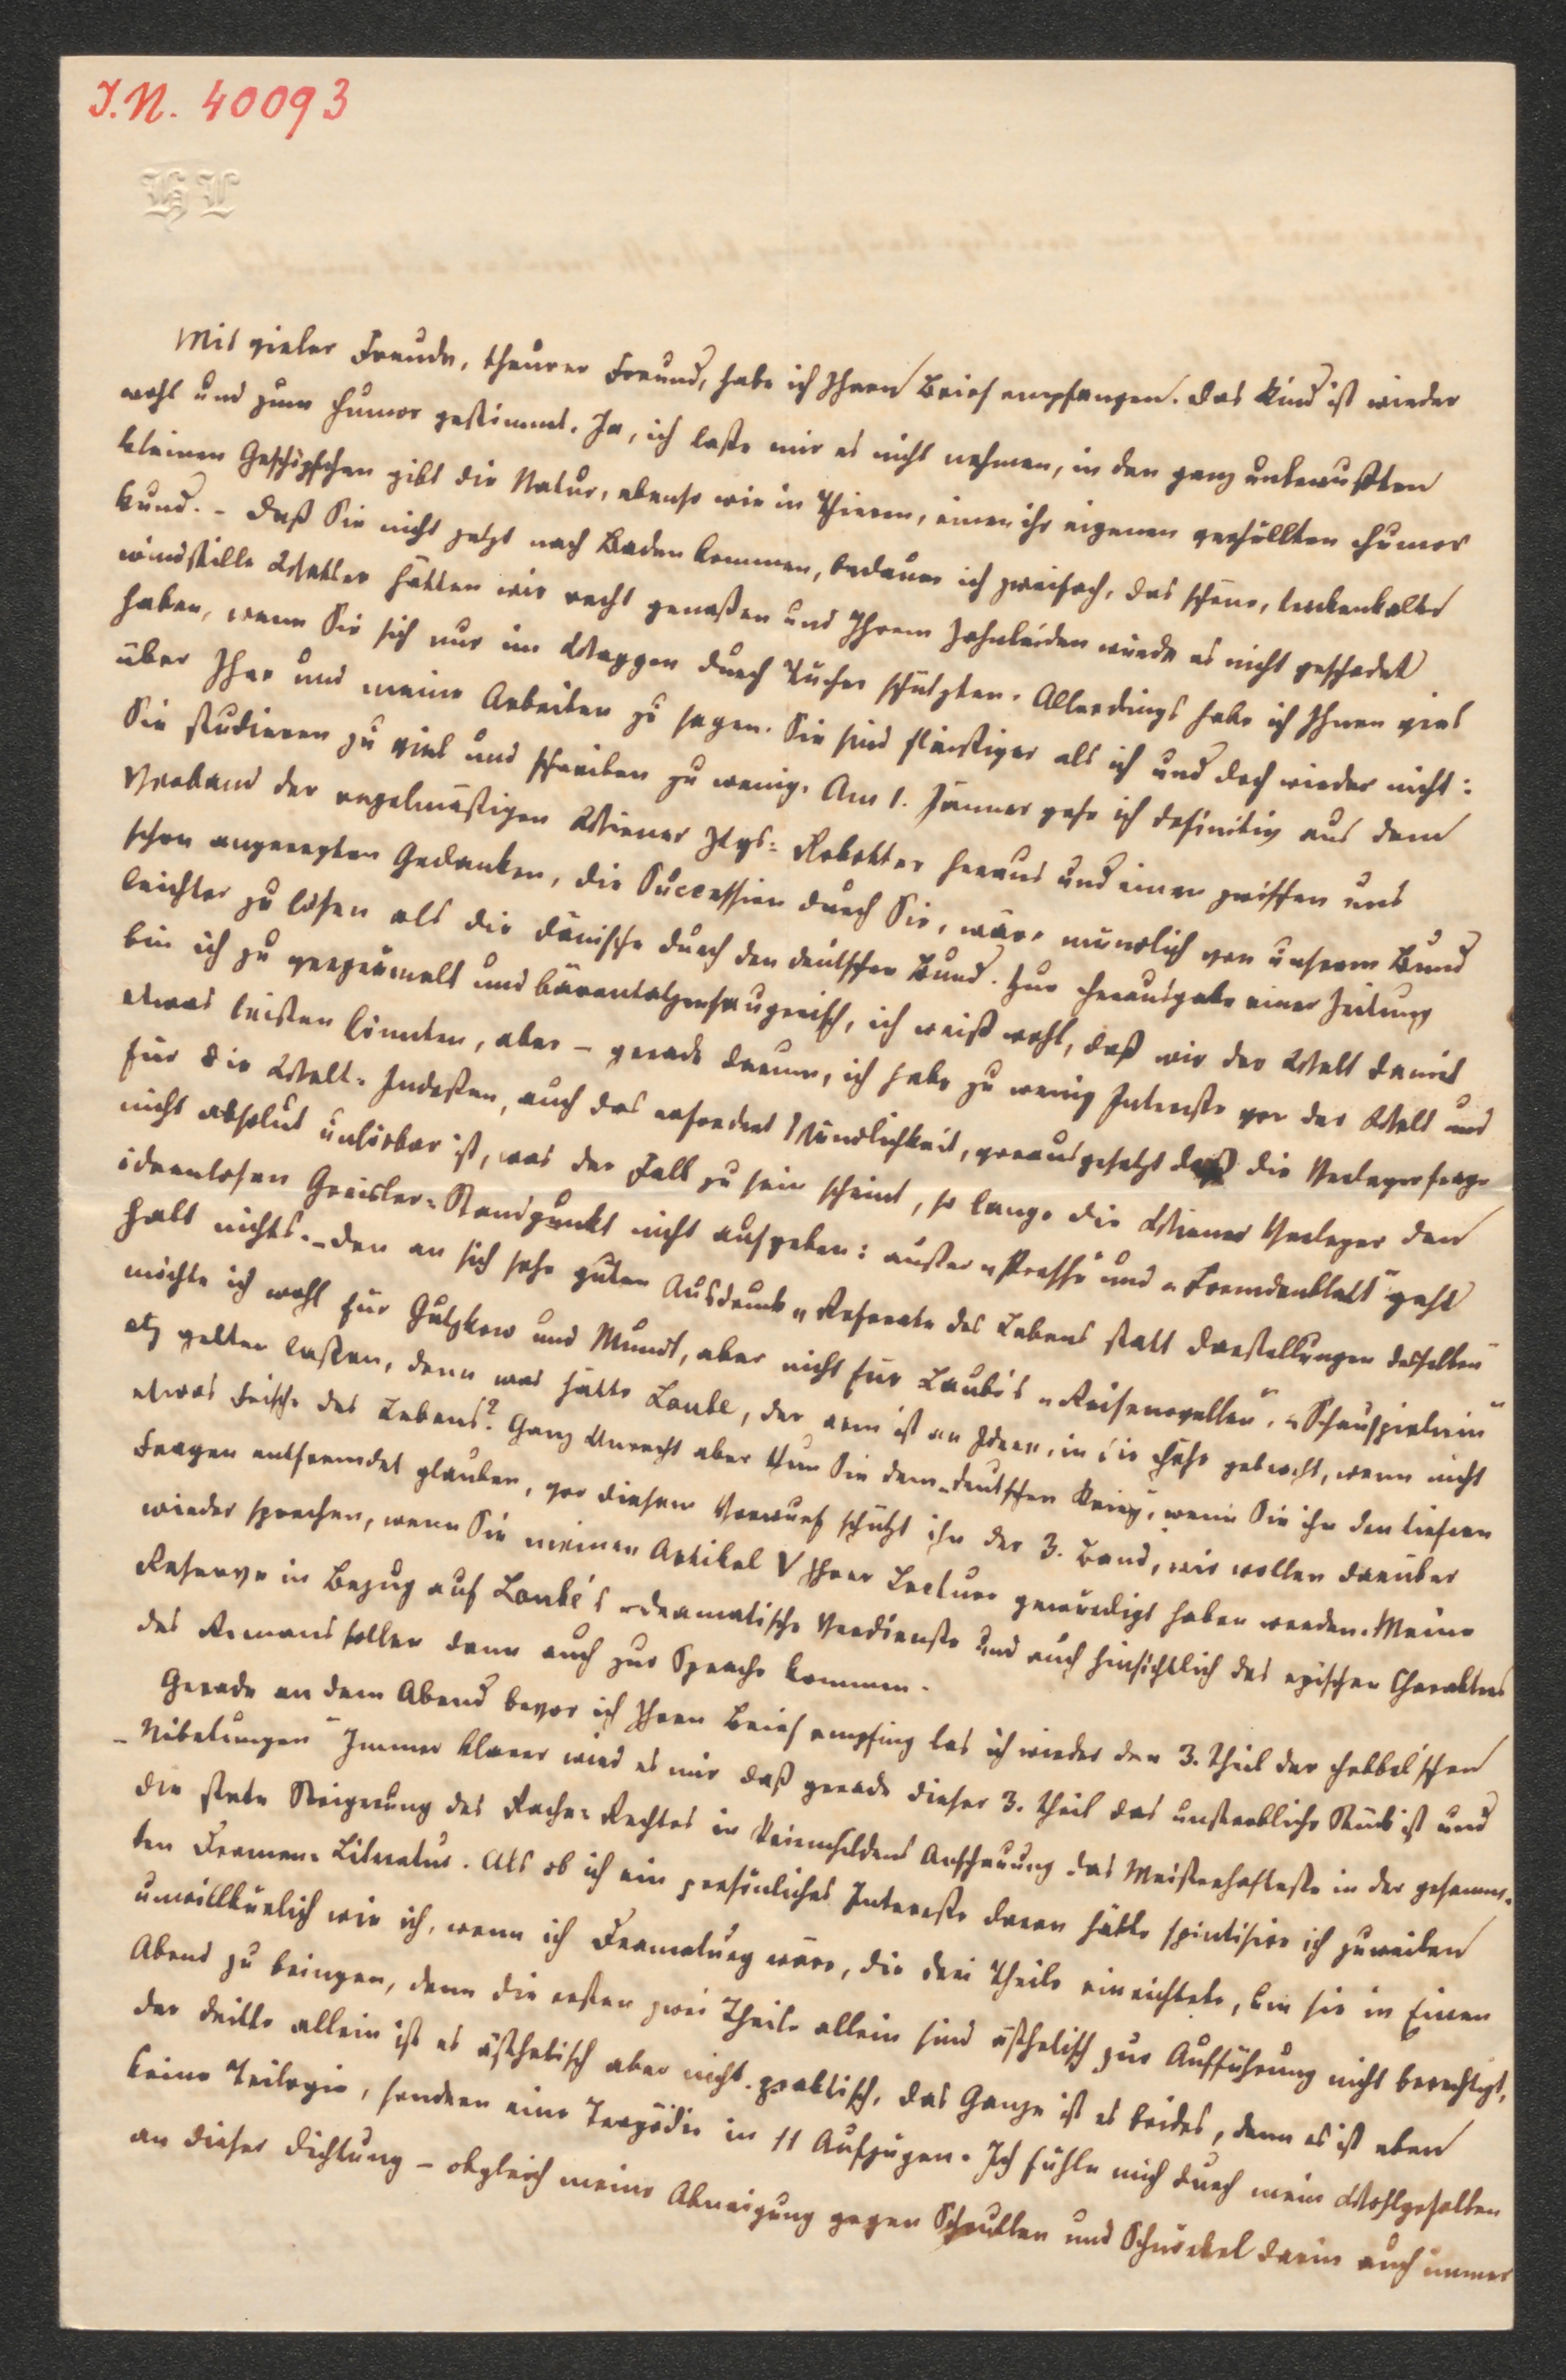 I.N. 40093
HL
Mit vieler Freude, theurer Freund, habe ich Ihren Brief empfangen. Das Kind ist wieder
wohl und zum Humor gestimmt. Ja, ich laße mir es nicht nehmen, in den ganz unbewußten
kleinen Geschöpfchen gibt die Natur, ebenso wie in Thieren, einen ihr eigenen verhüllten Humor
kund. - Daß Sie nicht jetzt nach Baden kommen, bedaure ich zweifach, das schöne, trockenkalte
windstille Wetter hätten wir recht genoßen und Ihrem Zahnleiden würde es nicht geschadet
haben, wenn Sie sich nur im Waggon durch Tücher schützten. Allerdings habe ich Ihnen viel
über Ihre und meine Arbeiten zu sagen. Sie sind fleißiger als ich und doch wieder nicht:
Sie studieren zu viel und schreiben zu wenig. Am 1. Jänner gehe ich definitiv aus dem
Verband der regelmäßigen Wiener Ztgs: Robotter heraus und einen zwischen uns
schon angeregten Gedanken, die Succession durch Sie, wäre mündlich von unserem Bund
leichter zu lösen als die dänische durch den deutschen Bund. Zur Herausgabe einer Zeitung
bin ich zu verzeumelt und bärentatzensaugerisch, ich weiß wohl, daß wir der Welt damit
etwas leisten könnten, aber - gerade darum, ich habe zu wenig Intereße vor der Welt und
für die Welt. Indeßen, auch das erfordert Mündlichkeit, vorausgesetzt daß die Verlegerfrage
nicht absolut unlösbar ist, was der Fall zu sein scheint, so lange die Wiener Verleger den
ideenlosen Greisler-Standpunkt nicht aufgeben: außer „Presse" und „Fremdenblatt" geht
halt nichts. - Den an sich sehr guten Ausdruck „Referate des Lebens statt Darstellungen desselben"
möchte ich wohl für Gutzkow und Mundt, aber nicht für Laube's „Reisenovellen", „Schauspielerin"
etz gelten laßen, denn was hätte Laube, der arm ist an Ideen, in die Höhe gebracht, wenn nicht
etwas Frische des Lebens? Ganz Unrecht aber thun Sie dem „deutschen Krieg", wenn Sie ihn den tieferen
Fragen entfremdet glauben, vor diesem Vorwurf schützt ihn der 3. Band, wir wollen darüber
wieder sprechen, wenn Sie meinen Artikel V Ihrer Lecture gewürdigt haben werden. Meine
Reserve in Bezug auf Laube's dramatische Verdienste und auch hinsichtlich des epischen Charakters
des Romans sollen dann auch zur Sprache kommen.
Gerade an dem Abend bevor ich Ihren Brief empfing las ich wieder den 3. Theil der Hebbel'schen
„Nibelungen" Immer klarer wird es mir daß gerade dieser 3. Theil das unsterbliche Stück ist und
die stete Steigerung des Rache-Rechtes in Kriemhildens Anschauung das Meisterhafteste in der gesamm-
ten Dramen-Literatur. Als ob ich ein persönliches Intereße daran hätte spintisire ich zuweilen
unwillkürlich wie ich, wenn ich Dramaturg wäre, die drei Theile einrichtete, um sie in Einen
Abend zu bringen, denn die ersten zwei Theile allein sind ästhetisch zur Aufführung nicht berechtigt,
der dritte allein ist es ästhetisch aber nicht praktisch, das Ganze ist es beides, denn es ist eben
keine Trilogie, sondern eine Tragödie in 11 Aufzügen. Ich fühle mich durch mein Wohlgefallen
an dieser Dichtung - obgleich meine Abneigung gegen Schrullen und Schnörkel darin auch immer